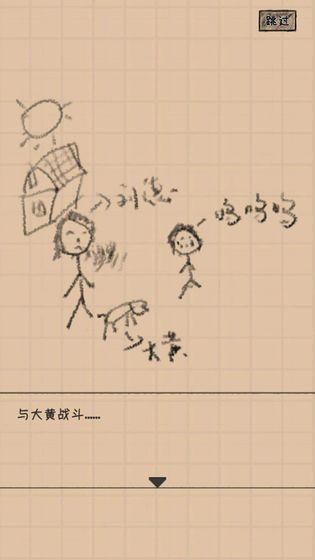 跳过
刘德
呜呜呜
大黄
与大黄战斗......